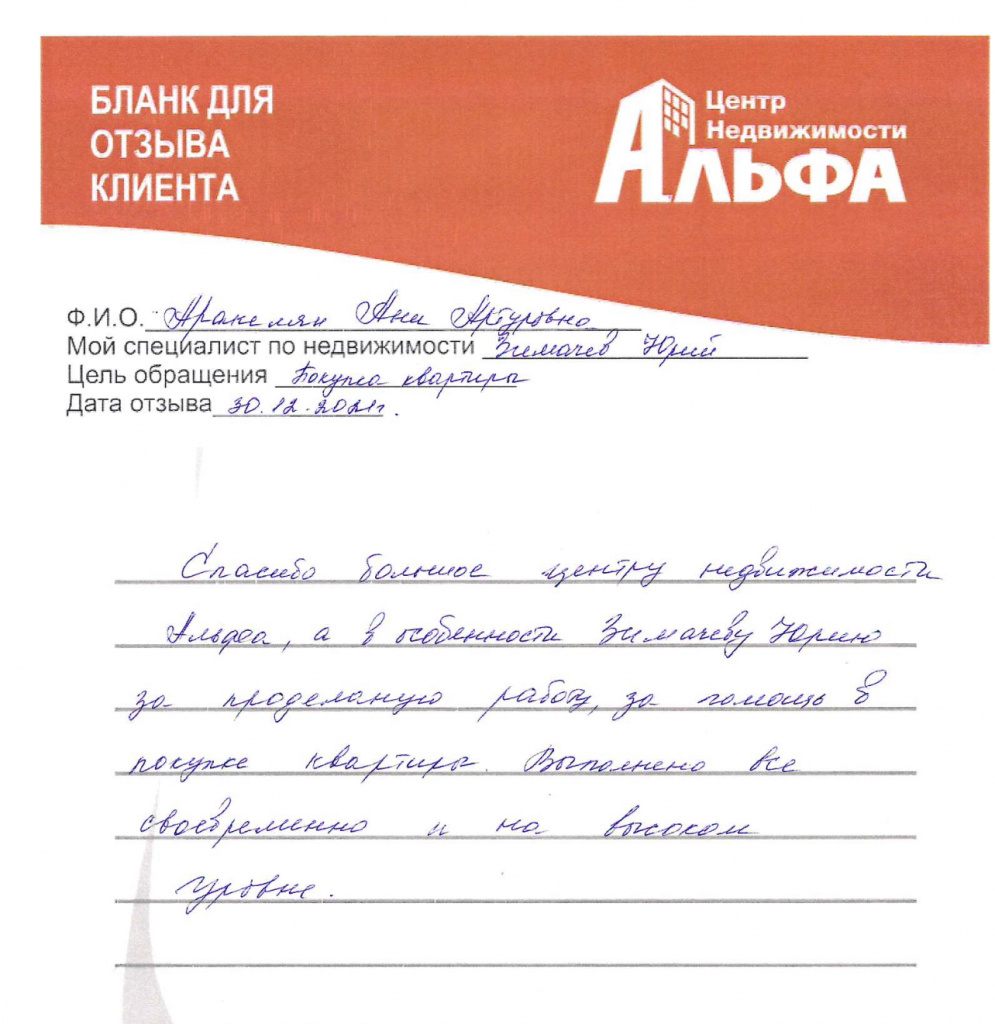 БЛАНК ДЛЯ
ОТЗЫВА
КЛИЕНТА
Центр
Недвижимости
АЛЬФА
Ф.И.О. Аракелян Ани Артуровна
Мой специалист по недвижимости Зимачев Юрий
Цель обращения Покупка квартиры
Дата отзыва 30.12.2021г.
Спасибо большое центру недвижимости
Альфа, а в особенности Зимачеву Юрию
за проделаную работу, за помощь в
покупке квартиры. Выполнено все
своевременно и на высоком
уровне.